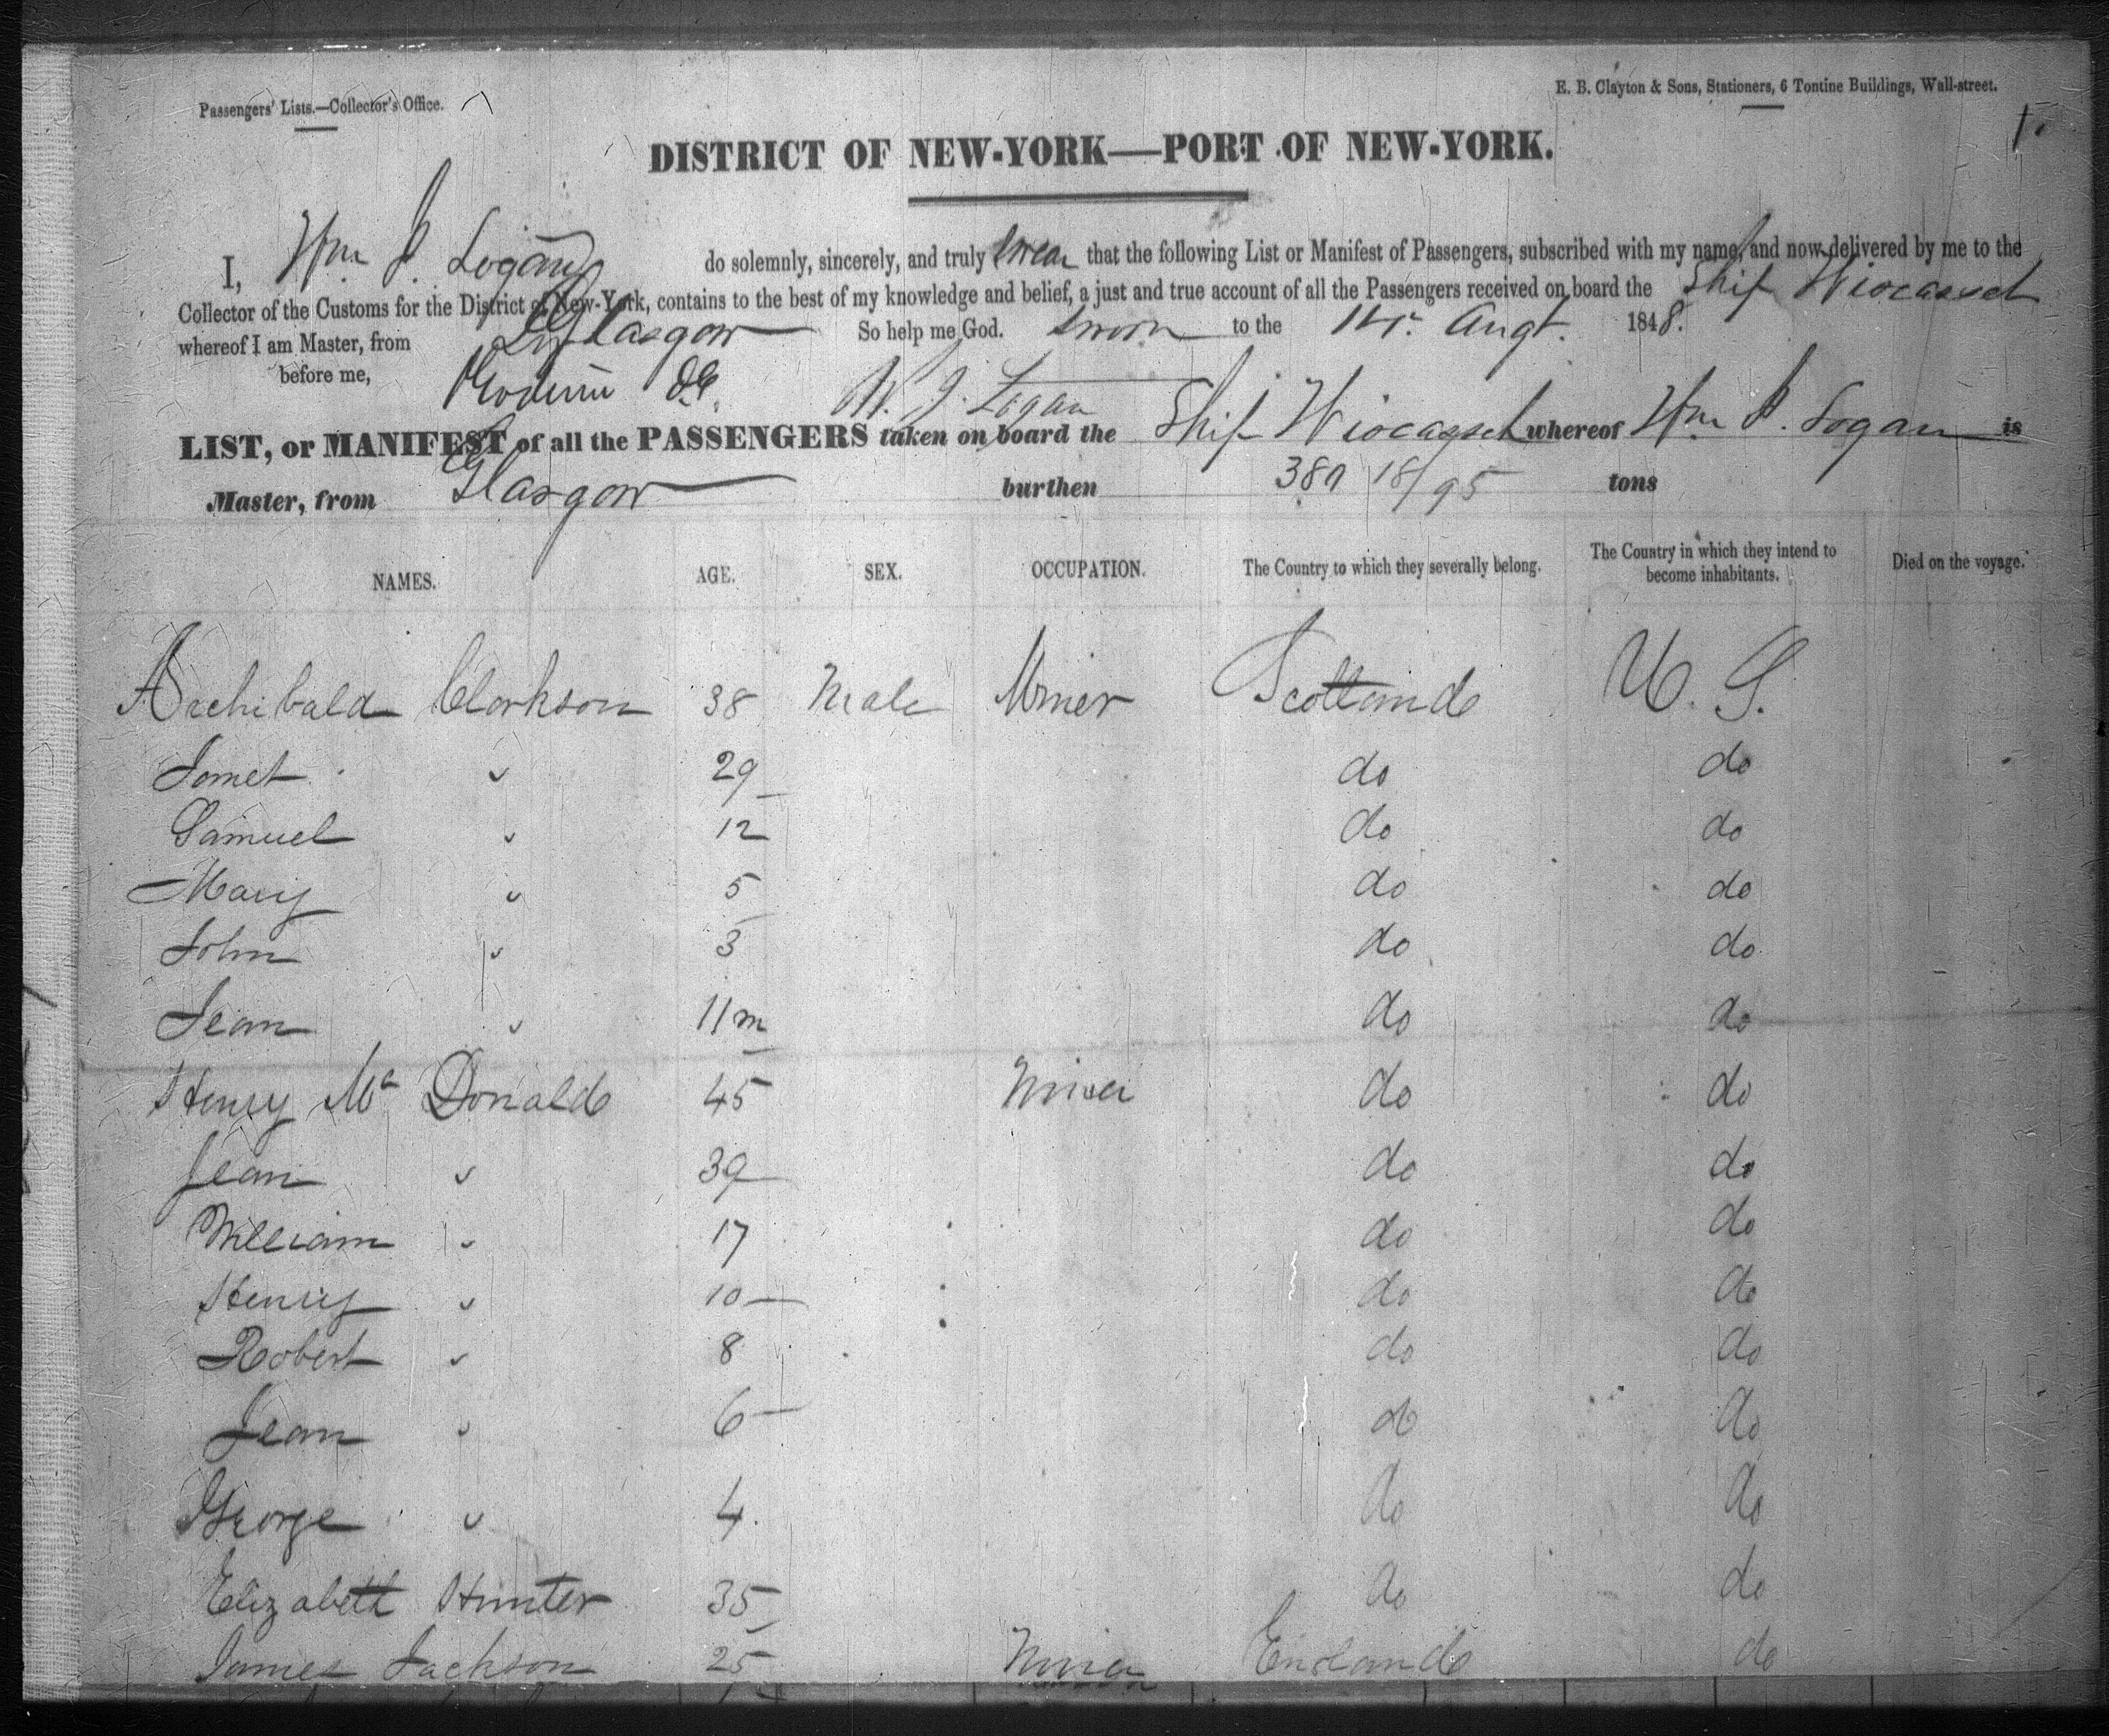 Passengers' Lists.—Collector's Office.
E. B. Clayton & Sons, Stationers, 6 Tontine Buildings, Wall-street.
1.
DISTRICT OF NEW-YORK—PORT OF NEW-YORK.
I, Wm J. Logan do solemnly, sincerely, and truly swear that the following List or Manifest of Passengers, subscribed with my name, and now delivered by me to the
Collector of the Customs for the District of New-York, contains to the best of my knowledge and belief, a just and true account of all the Passengers received on board the Ship Wiscasset
whereof I am Master, from Glasgow So help me God. Sworn to the Augt. 1848.
before me, W. J. Logan
LIST, or MANIFEST of all the PASSENGERS taken on board the Ship Wiscasset whereof Wm J. Logan is
Master, from Glasgow burthen 380 18/95 tons
NAMES. AGE. SEX. OCCUPATION. The Country to which they severally belong. The Country in which they intend to become inhabitants. Died on the voyage.
Archibald Clarkson 38 Male Miner Scotland U. S.
Janet " 29 do do
Samuel " 12 do do
Mary " 5 do do
John " 3 do do
Jean " 11m do do
Henry Mc Donald 45 Miner do do
Jean " 39 do do
William " 17 do do
Henry " 10 do do
Robert " 8 do do
Jean " 6 do do
George " 4 do do
Elizabeth Hunter 35 do do
James Jackson 25 Miner England do